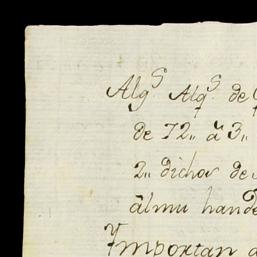 Algs. Algs. de
de 72,, à 3,,
2,, dichos de
álmu hande
Ymportan a